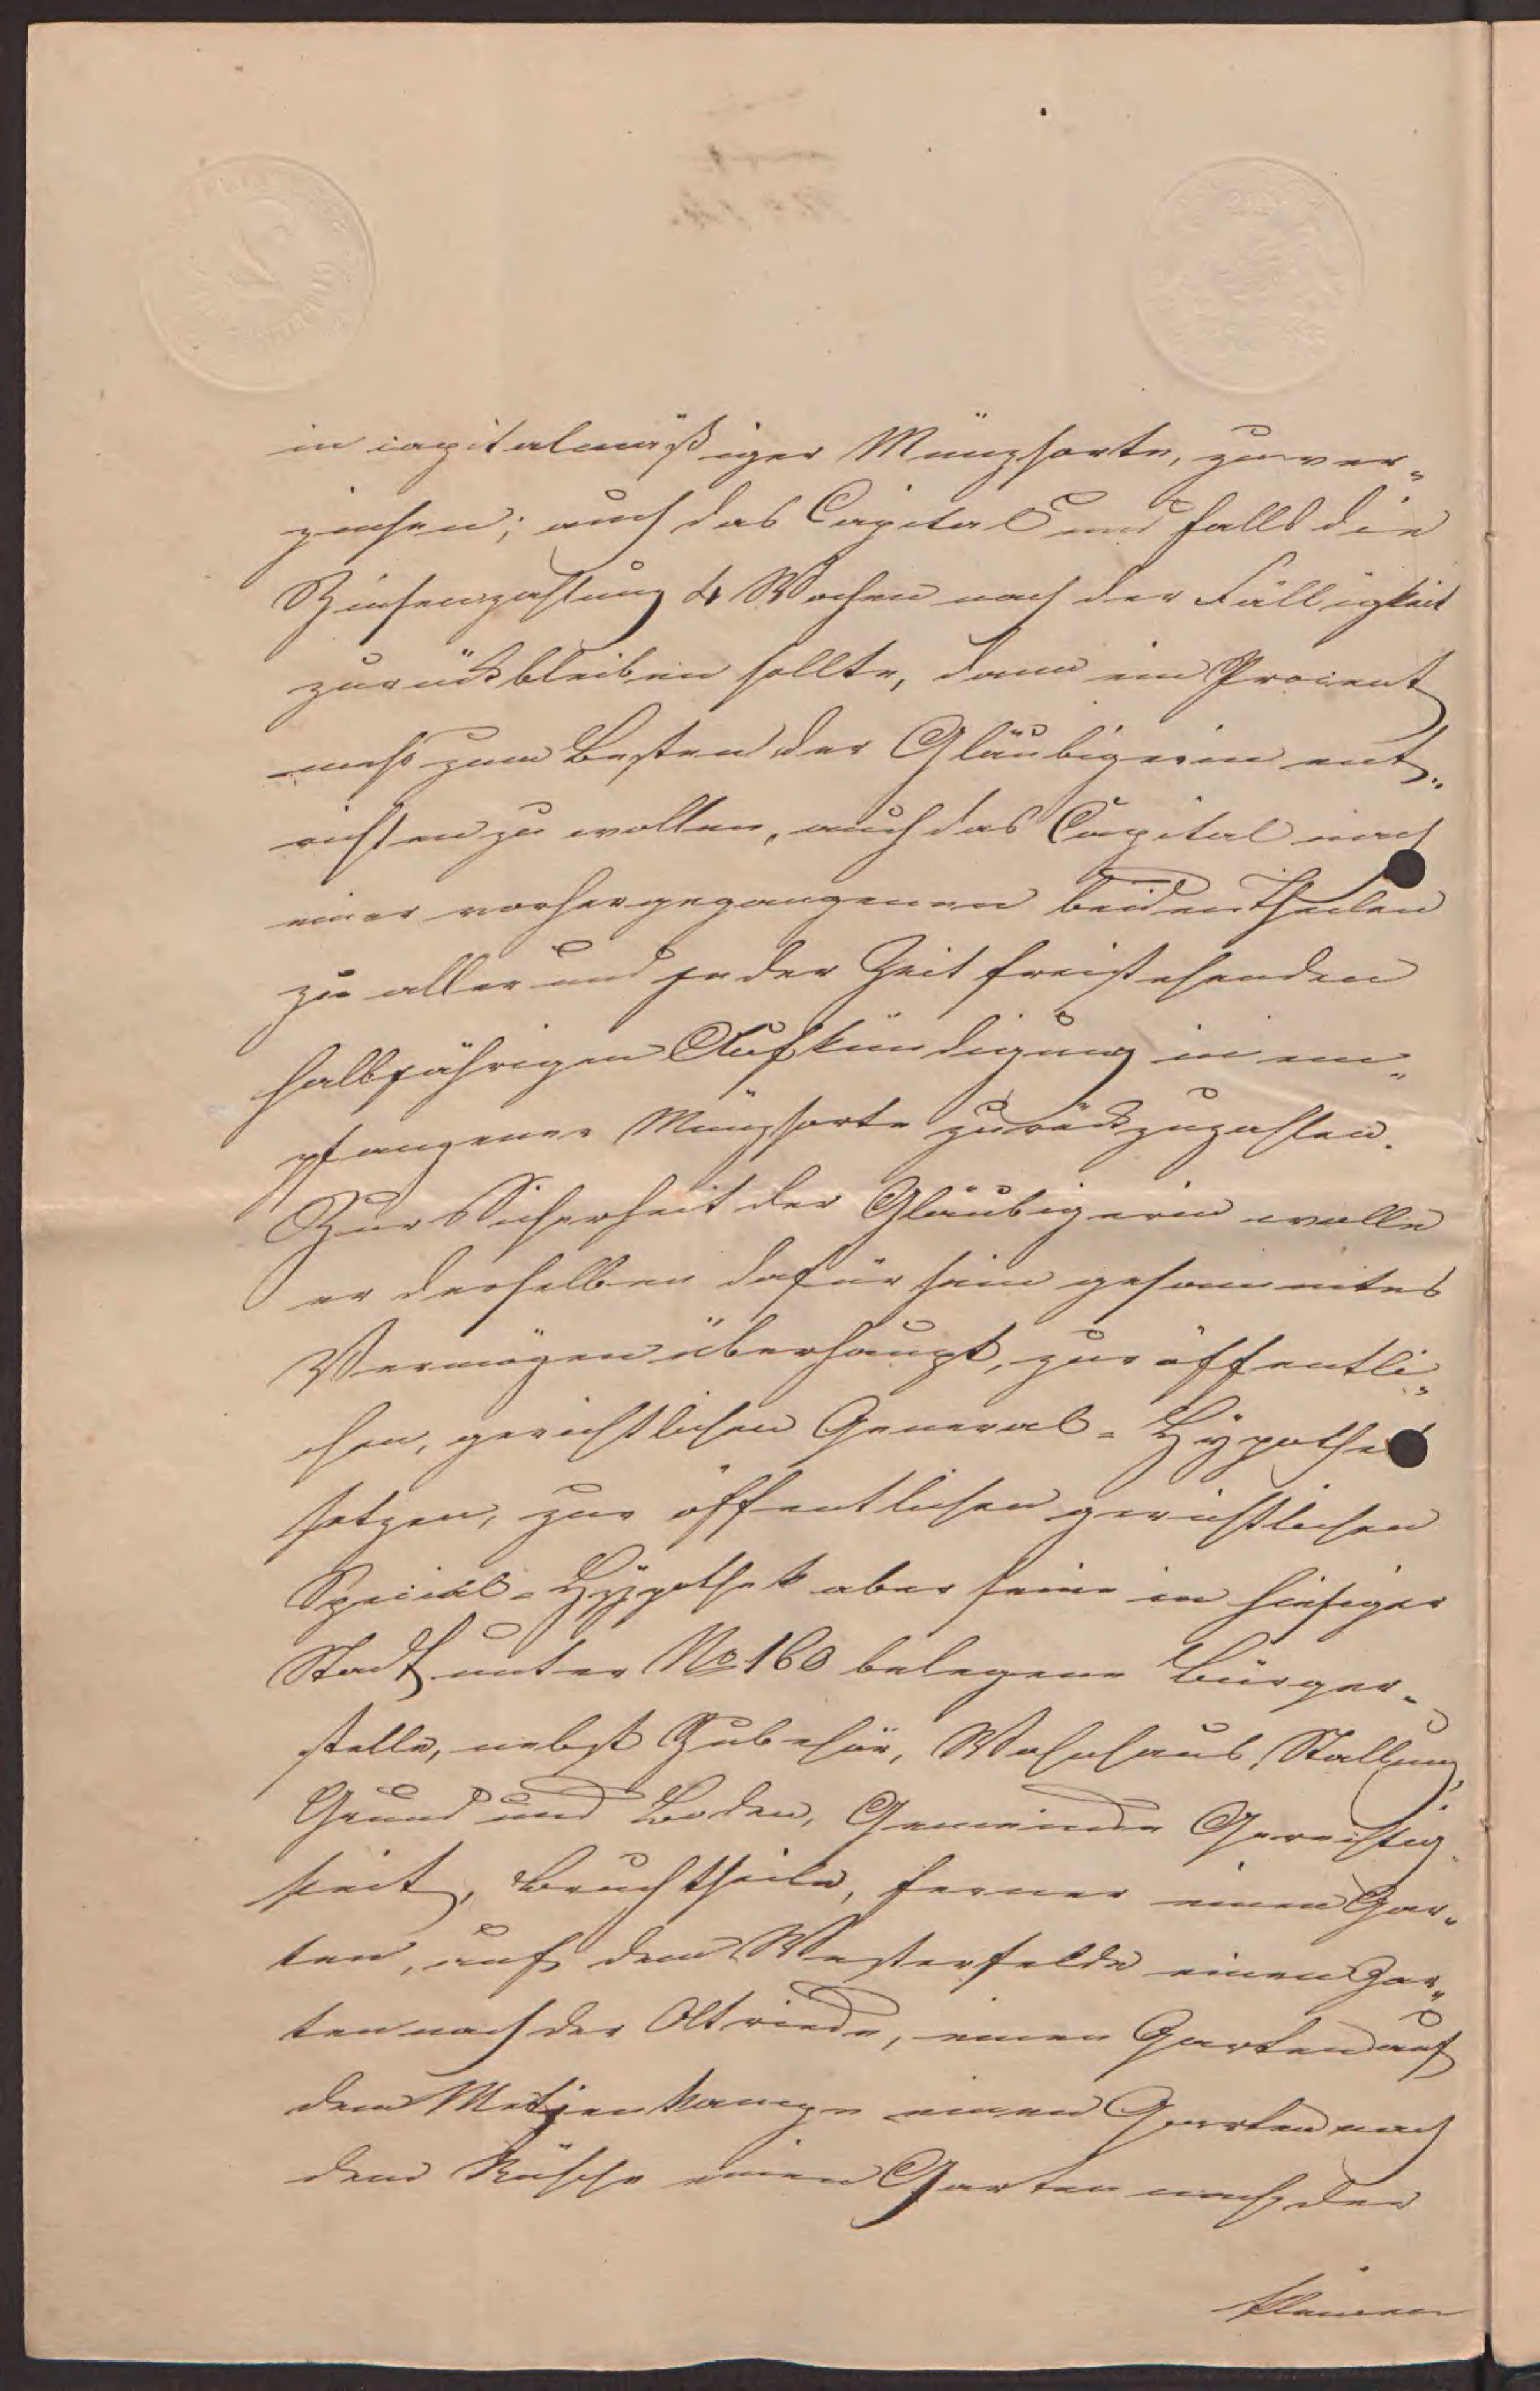 in capitalmäßiger Münzsorte, zu ver„
zinsen; auch das Capital und falls die
Zinsenzahlung 4 Wochen nach der Fälligkeit
zurückbleiben sollte, dann ein Procent
mehr zum Besten der Gläubigerin ent„
richten zu wollen, auch das Capital nach
einer vorhergegangenen beiden Theilen
zu aller und jeder Zeit freistehenden
halbjährigen Aufkündigung in em„
pfangener Münzsorte zurückzuzahlen.
Zur Sicherheit der Gläubigerin wolle
er derselben dafür sein gesammtes
Vermögen überhaupt, zur öffentli„
chen, gerichtlichen General-Hypothek
setzen, zur öffentlichen gerichtlichen
Special-Hypothek aber seine in hiesiger
Stadt unter No 160 belegene Bürger„
stelle, nebst Zubehör, Wohnhaus, Stallung,
Grund und Boden, Gemeinde Gerechtig„
keit, Bruchtheile, ferner einen Gar„
ten, auf dem Westerfelde einen Gar„
ten nach der Altriede, einen Garten auf
dem Metjenkampe einen Garten nach
dem Rüsche einen Garten nach der